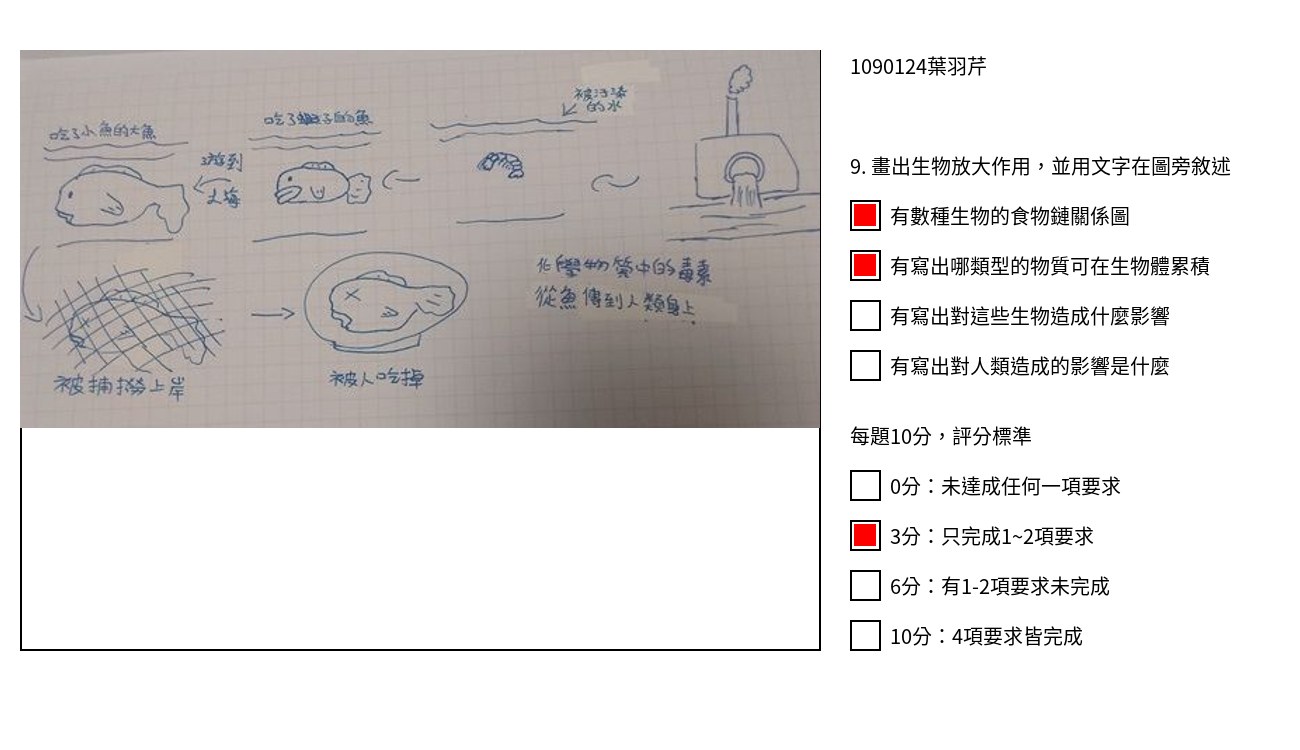 被污染
的水
吃了蝦子的魚
吃了小魚的大魚
游到
大海
化學物質中的毒素
從魚傳到人類身上
被捕撈上岸
被人吃掉
1090124葉羽芹
9. 畫出生物放大作用，並用文字在圖旁敘述
有數種生物的食物鏈關係圖
有寫出哪類型的物質可在生物體累積
有寫出對這些生物造成什麼影響
有寫出對人類造成的影響是什麼
每題10分，評分標準
0分：未達成任何一項要求
3分：只完成1~2項要求
6分：有1-2項要求未完成
10分：4項要求皆完成